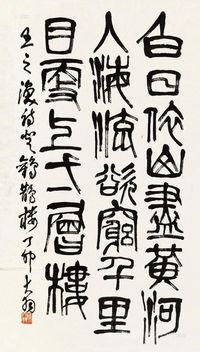 白日依山盡黃河
入海流欲窮千里
目更上弌層樓
王之渙詩登鸛鵲樓丁卯大羽